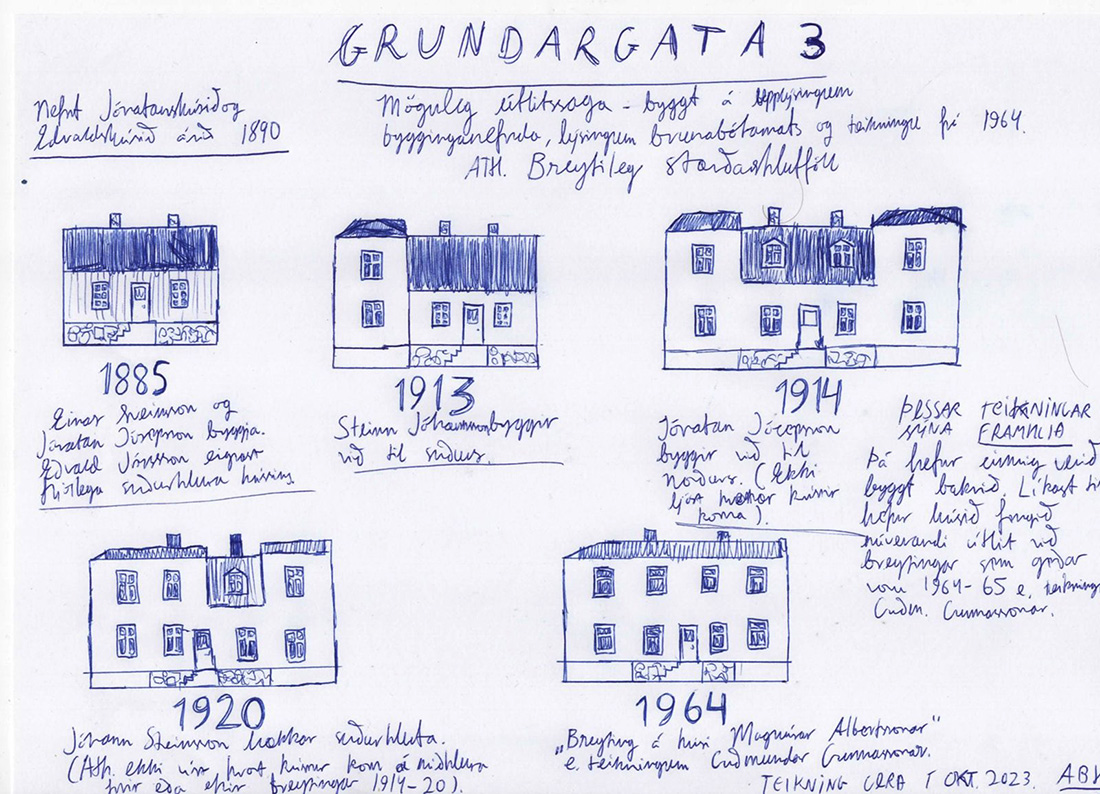 GRUNDARGATA 3
Nefnt Jónatanshúsið og
Edvaldshúsið árið 1890
Möguleg útlitssaga - byggt á upplýsingum
bygginganefnda, lýsingum brunabótamats og teikningu frá 1964.
ATH. Breytileg stærðarhlutföll
1885
Einar Sveinsson og
Jónatan Jósepsson byggja.
Edvald Jónsson eignast
fljótlega suðurhluta hússins
1913
Steinn Jóhannsson byggir
við til suðurs.
1914
Jónatan Jósepsson
byggir við til
Norðurs. (Ekki
ljóst hvenær kvistir
koma).
ÞESSAR TEIKNINGAR
SÝNA FRAMHLIÐ
Þá hefur einnig verið
byggt bakvið. Líkast til
hefur húsið fengið
núverandi útlit við
breytingar sem gerðar
voru 1964-65 e. teikningu
Guðm. Gunnarssonar.
1920
Jóhann Steinsson hækkar suðurhluta.
(Ath. ekki víst hvort kvistur kom á miðhluta
fyrir eða eftir breytingar 1914-20).
1964
„Breyting á húsi Magnúsar Albertssonar"
e. teikningum Guðmundar Gunnarssonar.
TEIKNING 1 OKT. 2023. ABH